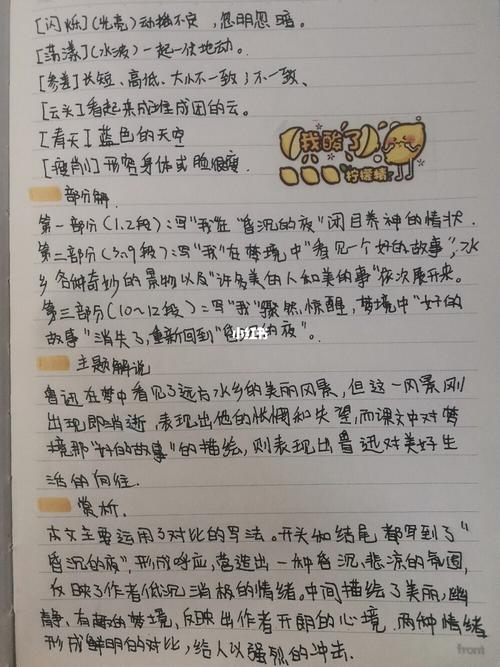 [闪烁](光亮)动摇不定,忽明忽暗。
[荡漾](水波)一起一伏地动。
[参差]长短、高低、大小不一致;不一致、
[云头]看起来成堆成团的云。
[青天]蓝色的天空
[瘦削]形容身体或脸很瘦.
我酸了
柠檬精
部分解.
第一部分(1.2段):写"我"在"昏沉的夜"闭目养神的情状.
第二部分(3~9段):写"我"在梦境中"看见一个好的故事",水
乡各种奇妙的景物以及"许多美的人和美的事"依次展开来。
第三部分(10~12段):写"我"骤然惊醒,梦境中"好的
故事"消失了,重新回到"昏沉的夜"。
小红书
主题解说
鲁迅在梦中看见了远方水乡的美丽风景,但这一风景刚
出现即消逝,表现出他的怅惘和失望,而课文中对梦
境那"好的故事"的描绘,则表现出鲁迅对美好生
活的向往.
赏析.
本文主要运用了对比的写法。开头和结尾都写到了"
昏沉的夜",形成呼应,营造出一种昏沉、悲凉的氛围,
反映了作者低沉消极的情绪。中间描绘了美丽,幽
静、有趣的梦境,反映出作者开朗的心境.两种情绪
形成鲜明的对比,给人以强烈的冲击.
front